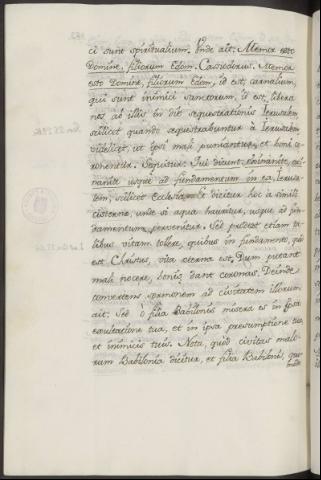 ci sunt spiritualium. Unde ait: Memor esto
Domine, filiorum Edom. Cassiodorus. Memor
esto Domine, filiorum Edom, id est, carnalium,
qui sunt inimici sanctorum, id est, libera
nos ab illis in die sequestrationis Ierusalem
scilicet quando sequestrabuntur à Ierusalem
videlicet, ut ipsi mali puniantur, et boni co-
ronentur. Sequitur: Qui dicunt, exinanite, exi-
nanite usque ad fundamentum in ea, Ierusa-
lem, scilicet Ecclesiam. Et dicitur hoc à simili
cisterne, unde si aqua hauritur, usque ad fun-
damentum pervenitur. Sed putet etiam ta-
libus vitam tollere, quibus in fundamento, qui
est Christus, vita eterna est. Dum putant
mali nocere, bonis dant coronas. Deinde
convertens sermonem ad civitatem illorum
ait: Sed ò filia Babilonis misera es in ipsa
exultatione tua, et in ipsa presumptione tua,
et inimicis tuis. Nota, quod civitas malo-
rum Babilonia dicitur, et filia Babilonis, que-